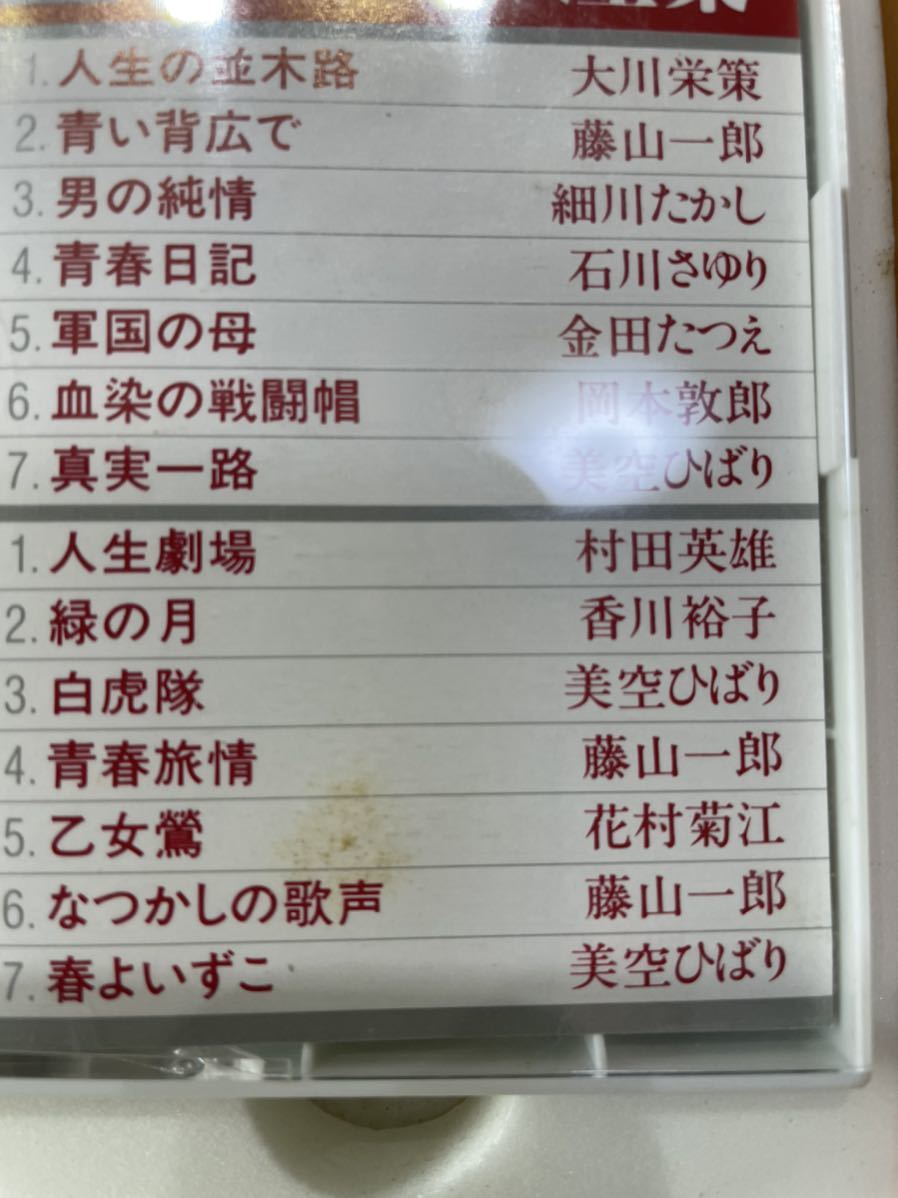 1. 人生の並木路 大川栄策
2. 青い背広で 藤山一郎
3. 男の純情 細川たかし
4. 青春日記 石川さゆり
5. 軍国の母 金田たつえ
6. 血染の戦闘帽 岡本敦郎
7. 真実一路 美空ひばり
1. 人生劇場 村田英雄
2. 緑の月 香川裕子
3. 白虎隊 美空ひばり
4. 青春旅情 藤山一郎
5. 乙女鶯 花村菊江
6. なつかしの歌声 藤山一郎
7. 春よいずこ 美空ひばり